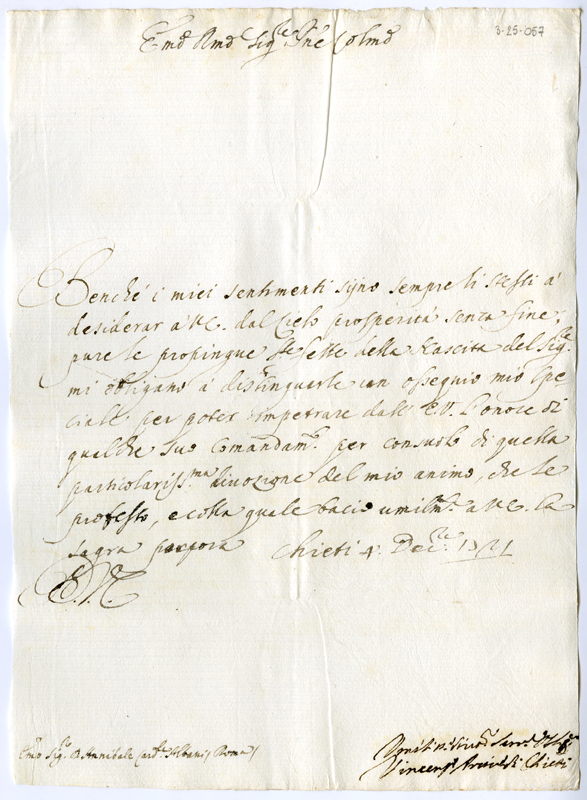 3-25-057
Emo Rmo Sigre Pne Colmo
Benché i miei sentimenti sijno sempre li stessi á
desiderar á V.E. dal Cielo prosperitá senza fine;
pure le propinque feste della Nascita del Sigre
mi obligano á distinguerle con ossequio mio spe
ciale per poter impetrare dall' E.V. l'onore di
qualche suo Comandamto per consuolo di quella
particolarissma divozione del mio animo, che le
professo, e colla quale bacio umilmte a V.E. la
sagra porpora Chieti 4. Decre 1721
E. V.
Emo Sigr D. Annibale Cardle Albani / Roma /
Umilo Servre
Vincenzo Arcivo di Chieti